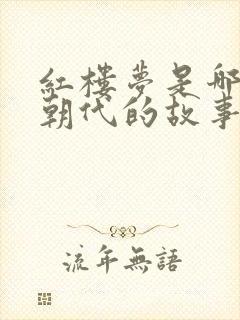 紅樓夢是哪
朝代的故事
流年無語